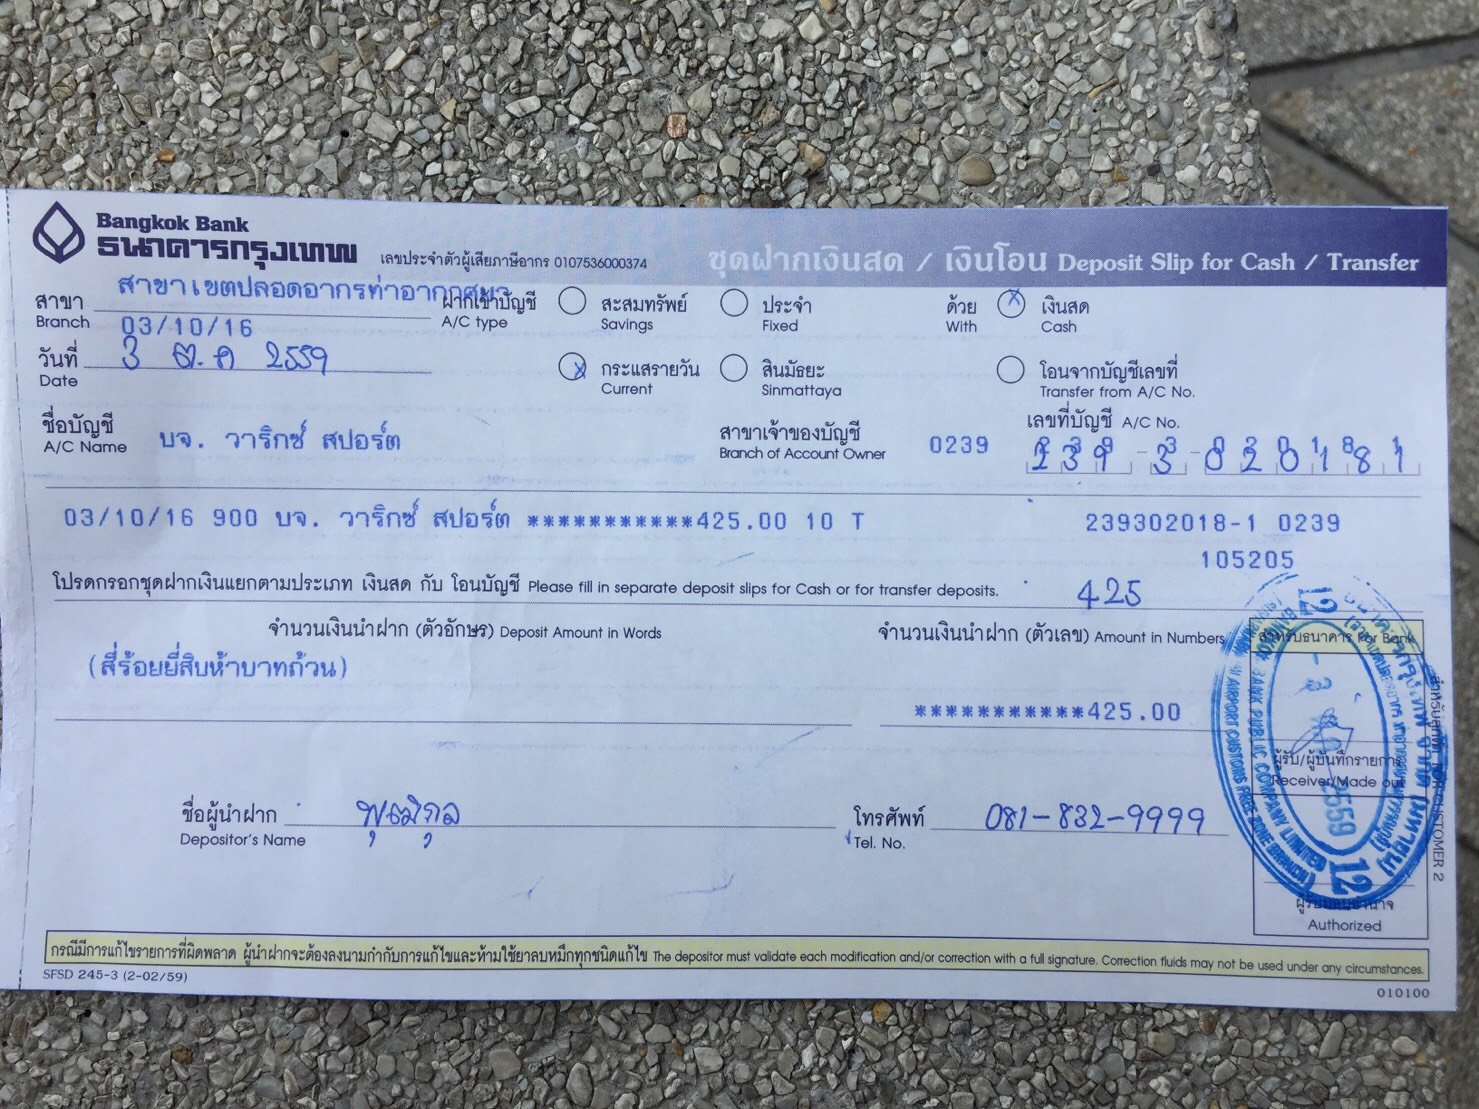 Bangkok Bank
ธนาคารกรุงเทพ
เลขประจำตัวผู้เสียภาษีอากร 0107536000374
ชุดฝากเงินสด / เงินโอน Deposit Slip for Cash / Transfer
สาขา Branch สาขาเขตปลอดอากรท่าอากาศยา
ฝากเข้าบัญชี A/C type
สะสมทรัพย์ Savings
ประจำ Fixed
ด้วย With
X เงินสด Cash
03/10/16
วันที่ Date 3 ต.ค 2559
X กระแสรายวัน Current
สินมัธยะ Sinmattaya
โอนจากบัญชีเลขที่ Transfer from A/C No.
ชื่อบัญชี A/C Name บจ. วาริกซ์ สปอร์ต
สาขาเจ้าของบัญชี Branch of Account Owner 0239
เลขที่บัญชี A/C No.
239-3-020181
03/10/16 900 บจ. วาริกซ์ สปอร์ต ***********425.00 10 T 239302018-1 0239
105205
โปรดกรอกชุดฝากเงินแยกตามประเภท เงินสด กับ โอนบัญชี Please fill in separate deposit slips for Cash or for transfer deposits. 425
จำนวนเงินนำฝาก (ตัวอักษร) Deposit Amount in Words
จำนวนเงินนำฝาก (ตัวเลข) Amount in Numbers
สำหรับธนาคาร For Bank
(สี่ร้อยยี่สิบห้าบาทถ้วน)
***********425.00
ผู้รับ/ผู้บันทึกรายการ
Receiver/Made out
ชื่อผู้นำฝาก Depositor's Name
โทรศัพท์ Tel. No. 081-832-9999
Authorized
สำหรับลูกค้า FOR CUSTOMER 2
12
BANGKOK BANK PUBLIC COMPANY LIMITED
12
กรณีมีการแก้ไขรายการที่ผิดพลาด ผู้นำฝากจะต้องลงนามกำกับการแก้ไขและห้ามใช้ยาลบหมึกทุกชนิดแก้ไข The depositor must validate each modification and/or correction with a full signature. Correction fluids may not be used under any circumstances.
SFSD 245-3 (2-02/59)
010100